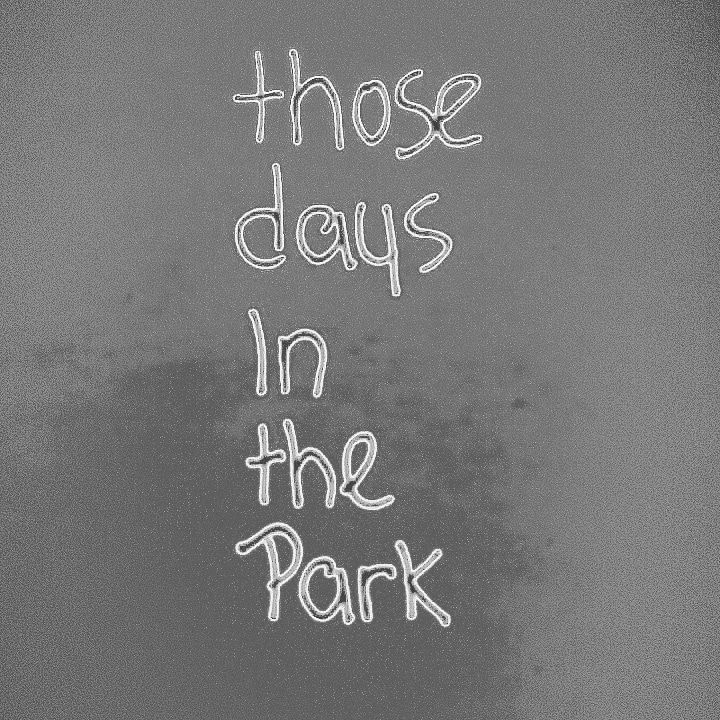 those
days
In
the
Park